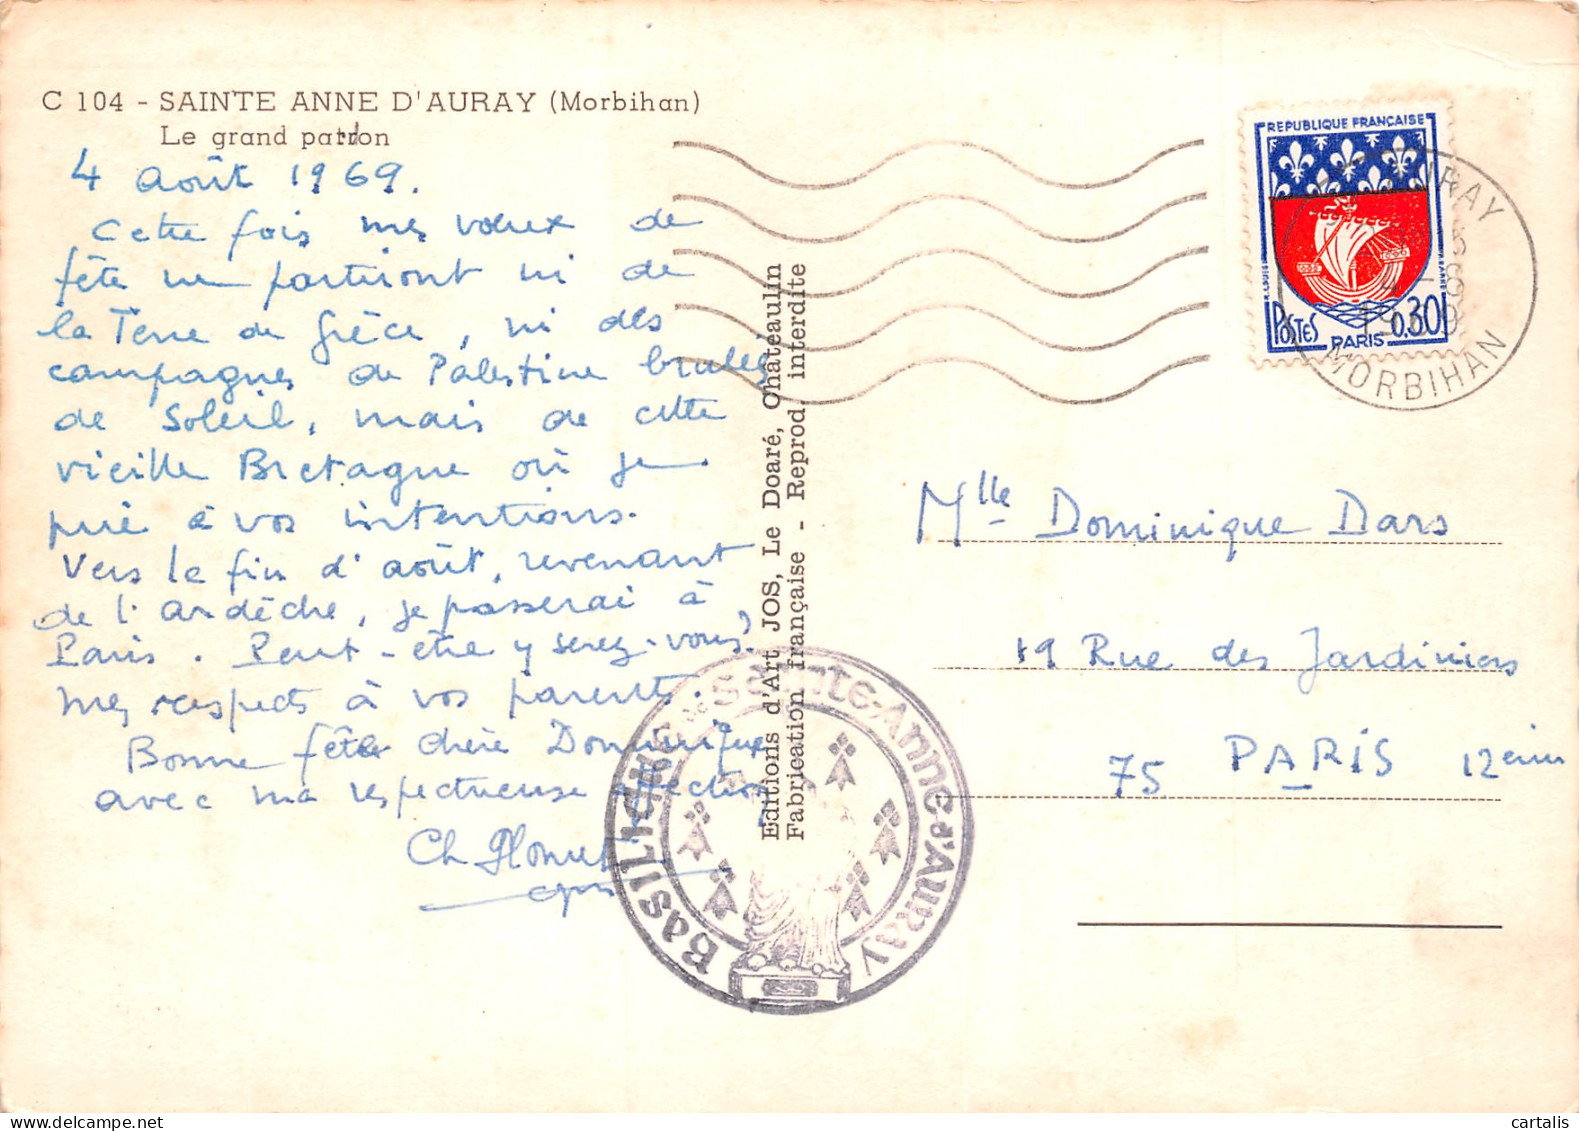 C 104 - SAINTE ANNE D'AURAY (Morbihan)
Le grand pardon
4 août 1969.
Cette fois mes vœux de
fête ne partiront ni de
la Terre de Grèce, ni des
campagnes de Palestine brulées
de soleil, mais de cette
vieille Bretagne où je
prie à vos intentions.
Vers le fin d'août, revenant
de l'Ardèche, je passerai à
Paris. Peut-être y serez-vous?
Mes respects à vos parents.
Bonne fête chère Dominique
avec ma respectueuse affection
Ch
Editions d'Art JOS, Le Doaré, Chateaulin
Fabrication française - Reprod. interdite
BASILIQUE DE SAINTE-ANNE D'AURAY
REPUBLIQUE FRANÇAISE
POSTES 0,30
PARIS
MORBIHAN
Mlle Dominique Dars
19 Rue des Jardiniers
75 PARIS 12eim
cartalis
delcampe.net